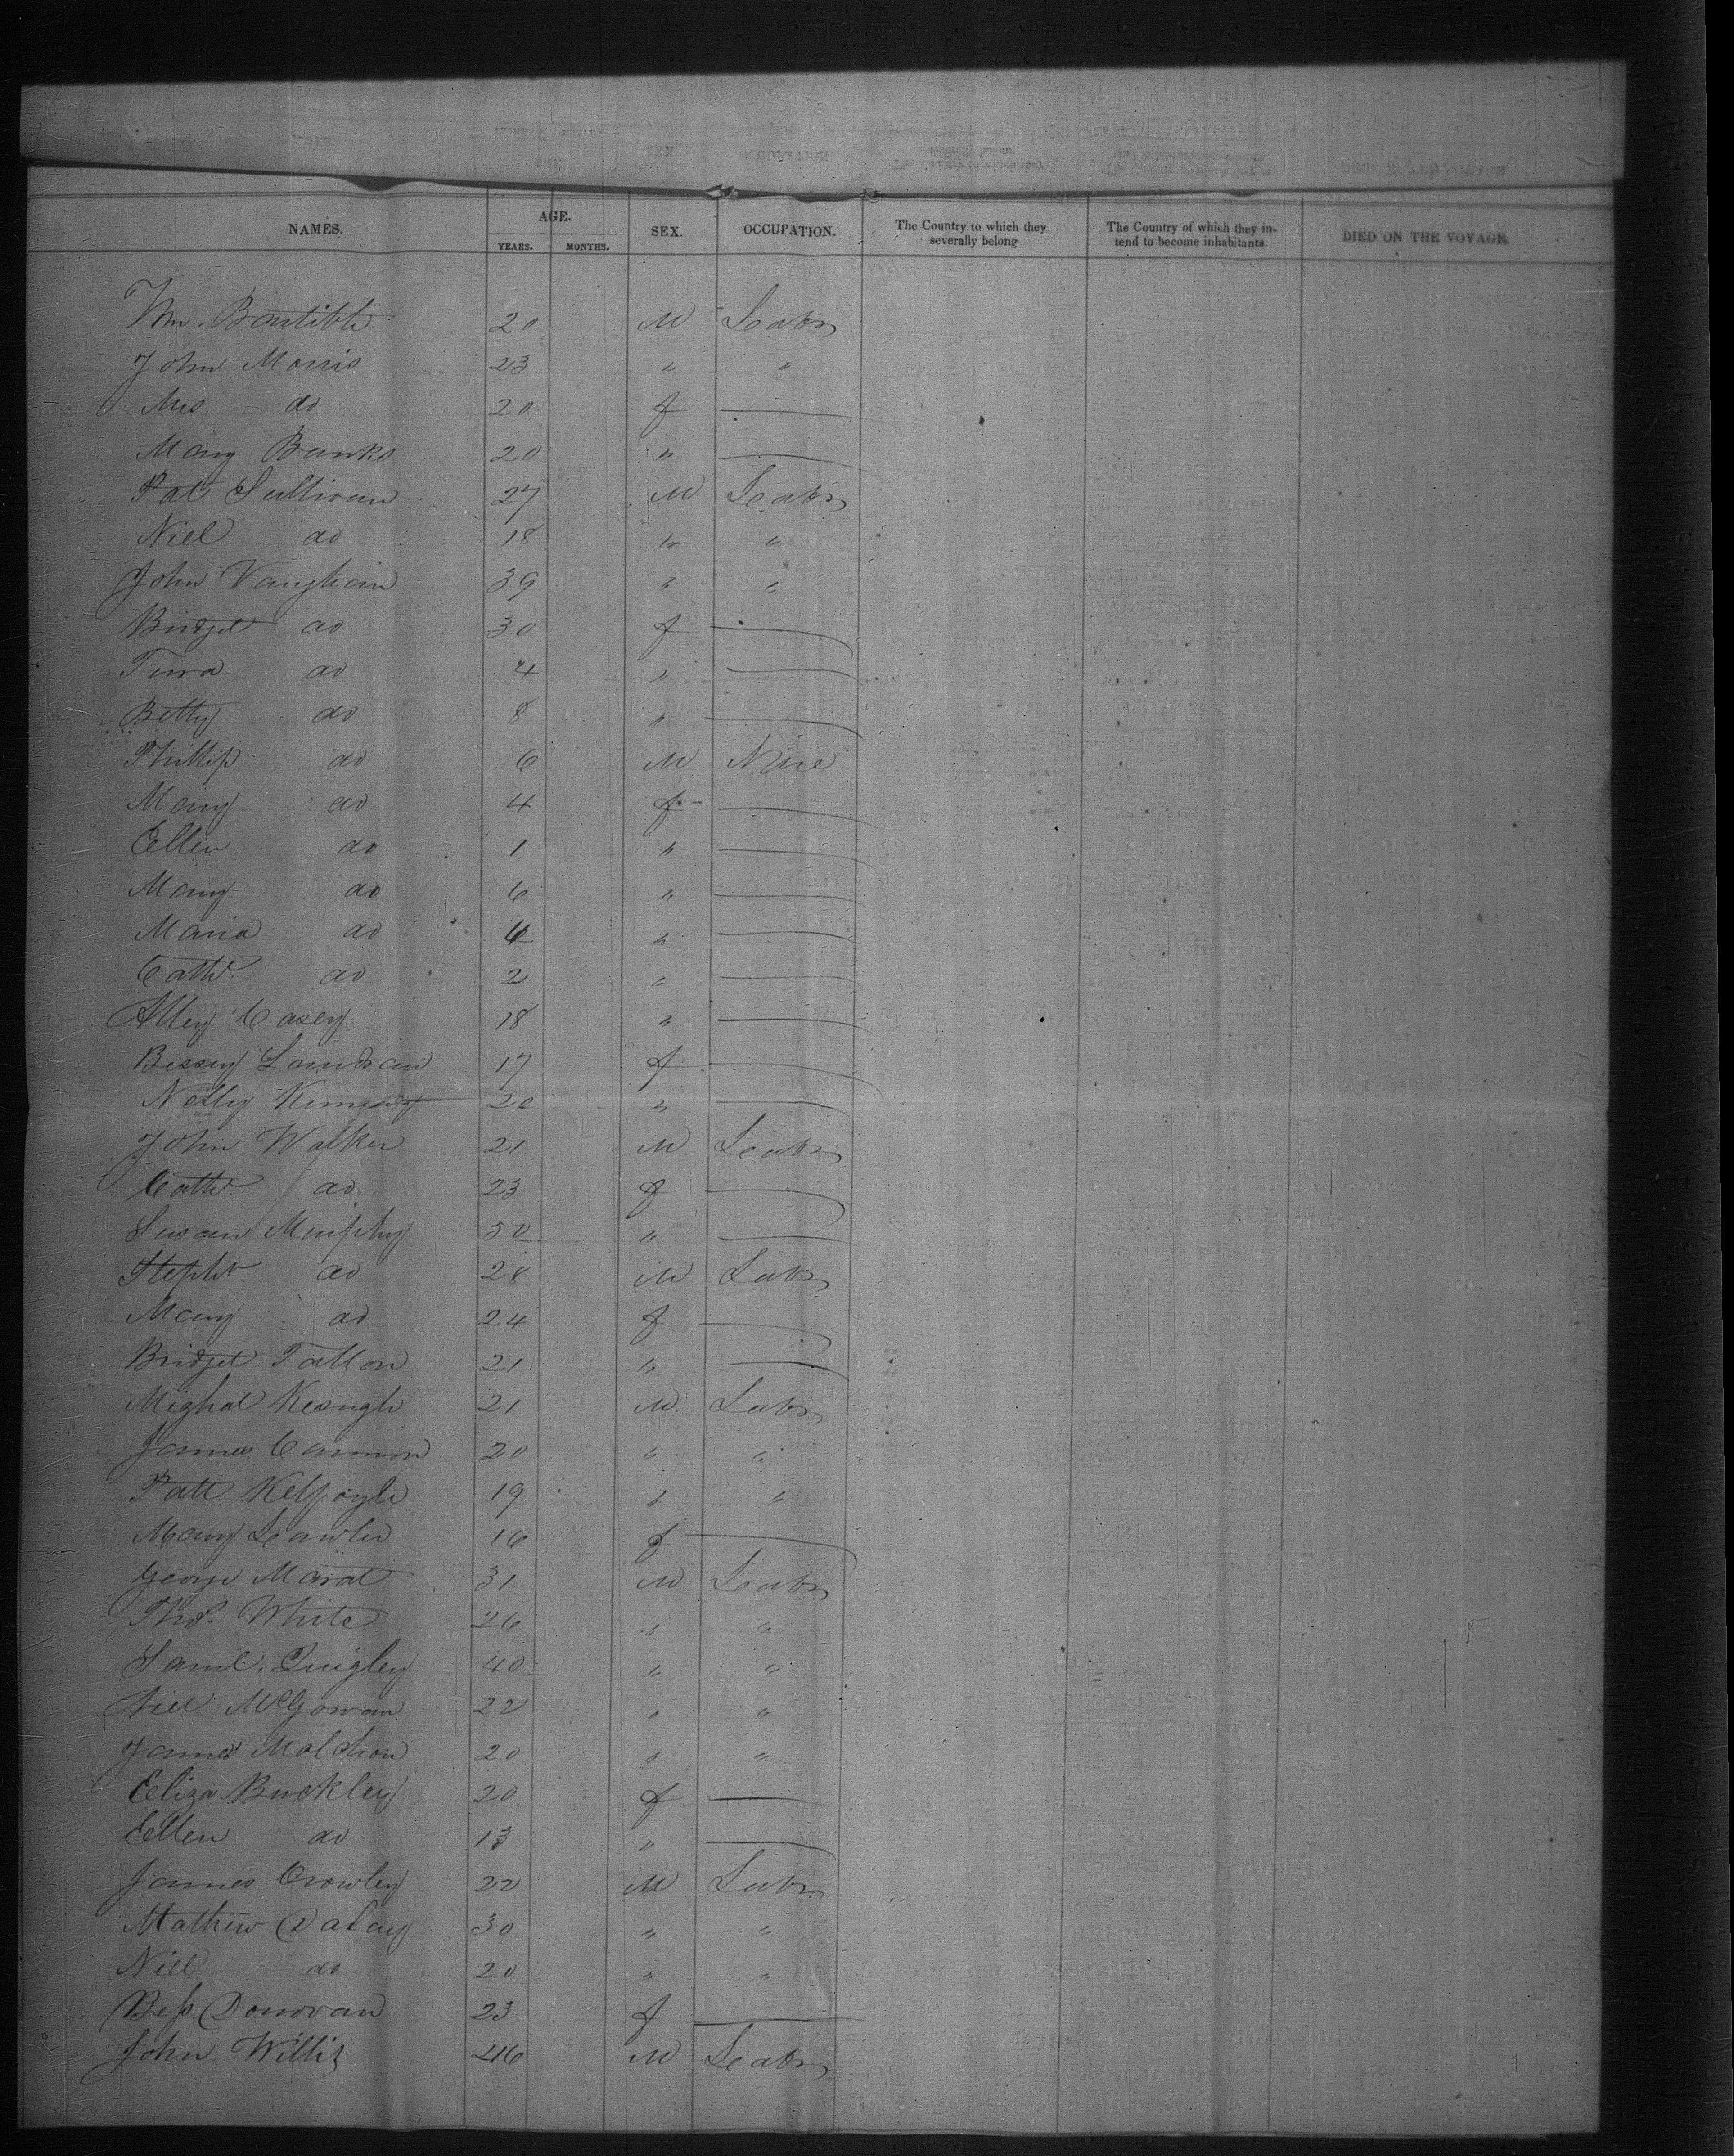 NAMES. AGE. YEARS. MONTHS. SEX. OCCUPATION. The Country to which they severally belong The Country of which they intend to become inhabitants. DIED ON THE VOYAGE.
Wm. 20 M Labr
John Morris 23 " "
Mrs do 20 f
Mary Banks 20 "
Pat Sullivan 27 M Labr
Niel do 18 " "
John Vaughan 39 " "
Bridget do 30 f
do 4 "
Betty do 8 "
Phillip do 6 M
Mary do 4 f
Ellen do 1 "
Mary do 6 "
Maria do "
Cath. do 2 "
Alley Casey 18 "
Bessy 17 f
Kennedy 20 "
John Walker 21 M Labr
Cath. do 23 f
Susan Murphy 50 "
Steph do 28 M Labr
Mary do 24 f
Bridget Tallon 21 "
Mighal Keough 21 M Labr
James Cannon 20 " "
Patt 19 " "
Mary Lawler 16 f
George 31 M Labr
Thos. White 26 " "
Saml. Quigley 40 " "
Niel McGowan 22 " "
James 20 " "
Eliza Buckley 20 f
Ellen do 13 "
James Crowley 22 M Labr
Mathew Dalay 30 " "
Niel do 20 " "
Bess Donovan 23 f
John Willis 46 M Labr